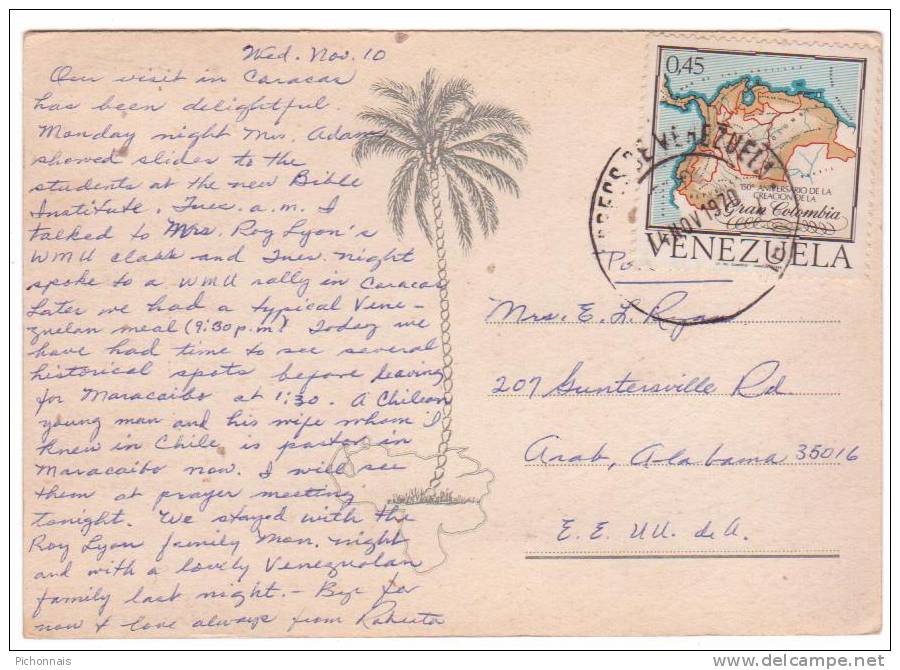 Wed. Nov. 10
Our visit in Caracas
has been delightful.
Monday night Mrs. Adams
showed slides to the
students at the new Bible
Institute. Tues. a.m. I
talked to Mrs. Roy Lyon's
WMU class and Tues. night
spoke to a WMU rally in Caracas
Later we had a typical Vene-
zuelan meal (9:30 p.m.) Today we
have had time to see several
historical spots before leaving
for Maracaibo at 1:30. A Chilean
young man and his wife whom I
knew in Chile is pastor in
Maracaibo now. I will see
them at prayer meeting
tonight. We stayed with the
Roy Lyon family Mon. night
and with a lovely Venezuelan
family last night. - Bye for
now & love always from Roberta
0,45
150º ANIVERSARIO DE LA
CREACION DE LA
Gran Colombia
VENEZUELA
CORREOS DE VENEZUELA
14 NOV 1970
Mrs. E. L. Ryan
207 Guntersville Rd.
Arab, Alabama 35016
E.E. U.U. de A.
Pichonnais
www.delcampe.net